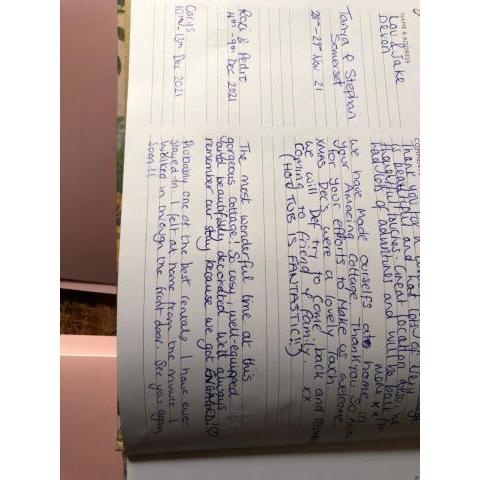 NAME & ADDRESS
Lou & Jake
Devon
COMMENTS
Thank you for a
lots of very
beautiful and
thoughtful touches. Great location also we
had lots of adventures and will be back for
more xx
Tanya & Stephan
Somerset
28th - 29th Nov 21
We have made ourselves at home in
your Amazing Cottage. Thank you so much
for your efforts to make us welcome,
xmas Dec's were a lovely touch.
We will Def try to come back and
coming to friend & family. xx
(HOT TUB IS FANTASTIC!!)
Rosi & Pedro
4th - 9th Dec 2021
The most wonderful time at this
gorgeous cottage! So cosy, well-equipped
and beautifully decorated. We'll always
remember our stay because we got ENGAGED!
Carys
10th - 13th Dec 2021
Probably one of the best rentals I have ever
stayed in. I felt at home from the minute I
walked in through the front door. See you again
soon!!